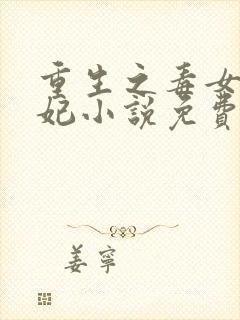 重生之毒女
妃小說免費
姜寧